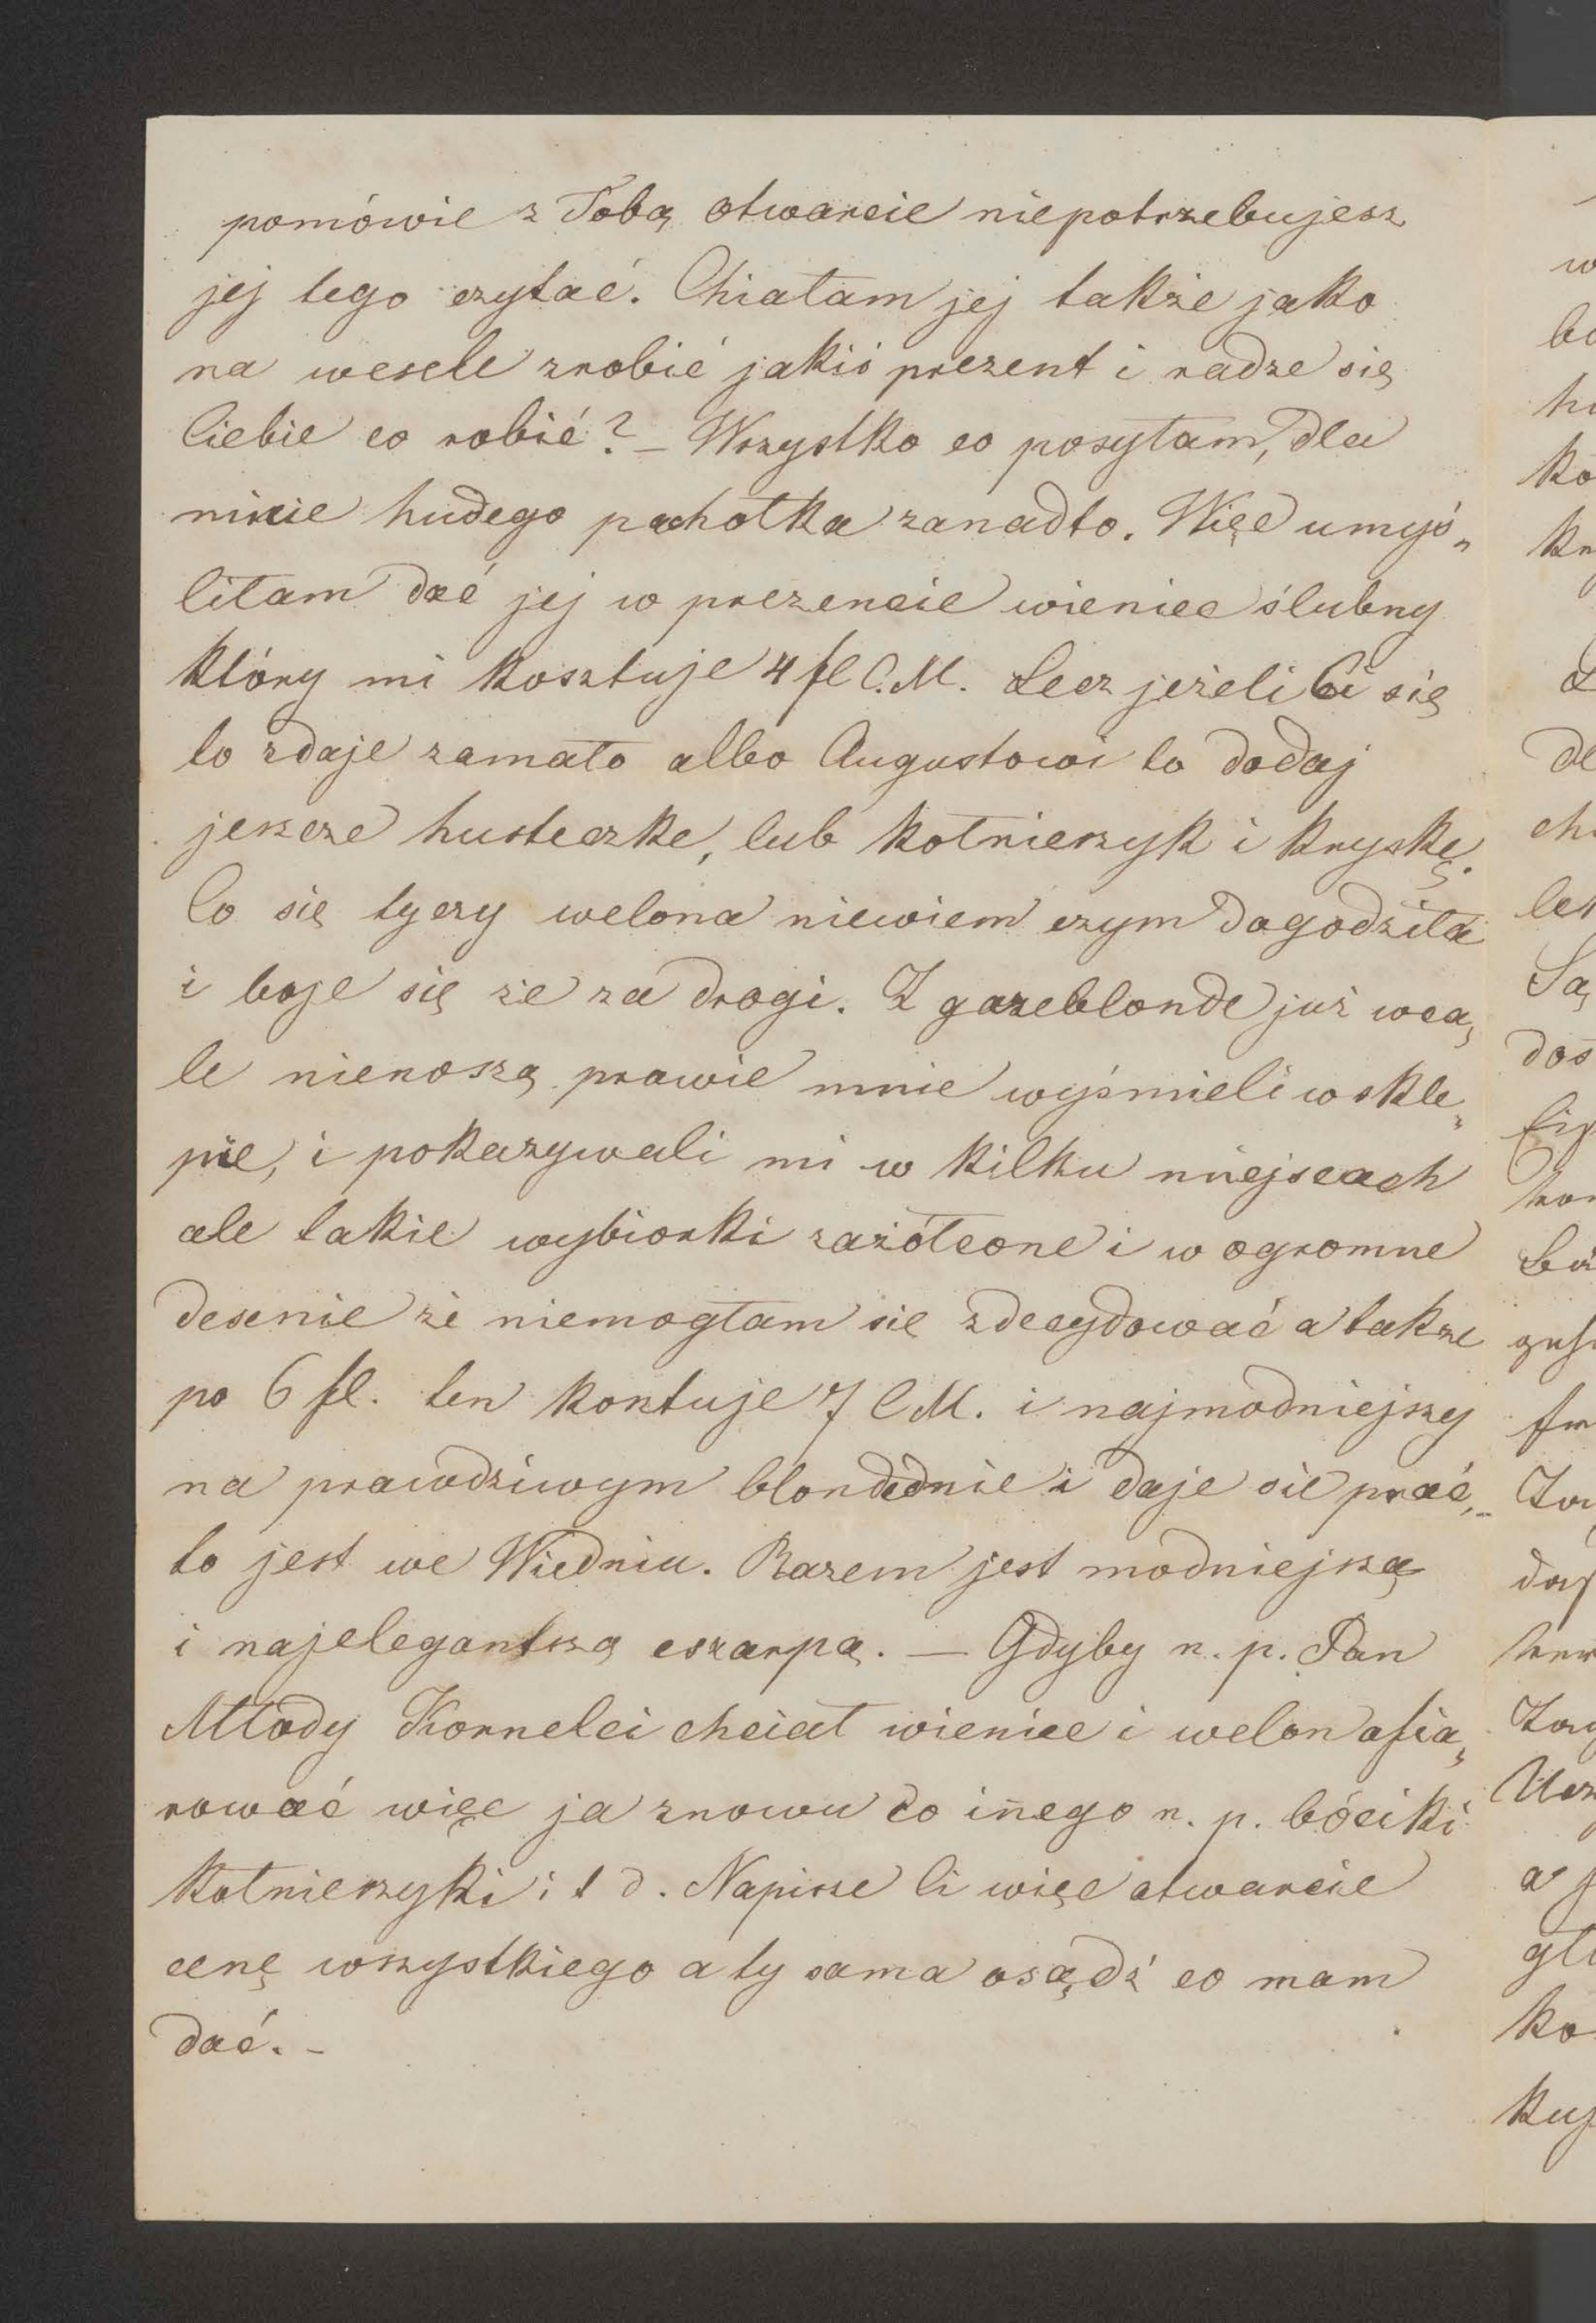 pomówić z Tobą otwarcie niepotrzebujesz
jej tego czytać. Chiałam jej także jako
na wesele zrobić jakiś prezent i radze się
Ciebie co robić? – Wszystko co posyłam, dla
mnie hudego pachołka zanadto. Więc umyś„
liłam dać jej w prezencie wieniec ślubny
który mi kosztuje 4 fl C.M. Lecz jeżeli Ci się
to zdaje zamało albo Augustowi to dodaj
jeszcze husteczke, lub kołnierzyk i kryskę.
Co się tyczy welona niewiem czym dogodziła
i boje się że za drogi. Z gazeblonde już wca„
le nienoszą prawie mnie wyśmieli w skle„
pie, i pokazywali mi w kilku miejscach
ale takie wybiorki zażółcone i w ogromne
desenie że niemogłam sie zdecydować a także
po 6 fl. ten kosztuje 7 C M. i najmodniejszy
na prawdziwym blondednie i daje sie prać,
to jest we Wiedniu. Razem jest modniejszą
i najelegantszą eszarpą. — Gdyby n. p. Pan
Młody Kornelci chciał wieniec i welon afia„
rować więc ja znowu co iñego n. p. bóciki
kołnierzyki i t d. Napisze Ci więc otwarcie
cenę wszystkiego a ty sama osądź co mam
dać. –